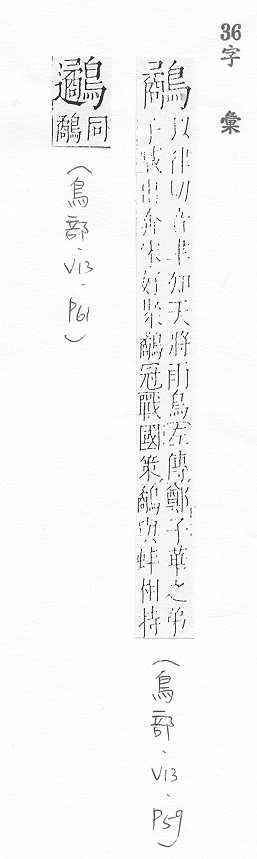 36字彙
鷸
以律切音聿知天將雨鳥左傳鄭子華之弟
子臧出奔宋好聚鷸冠戰國策鷸與蚌相持
（鳥部、V13、P59）
同
鷸
（鳥部、V13、P61）